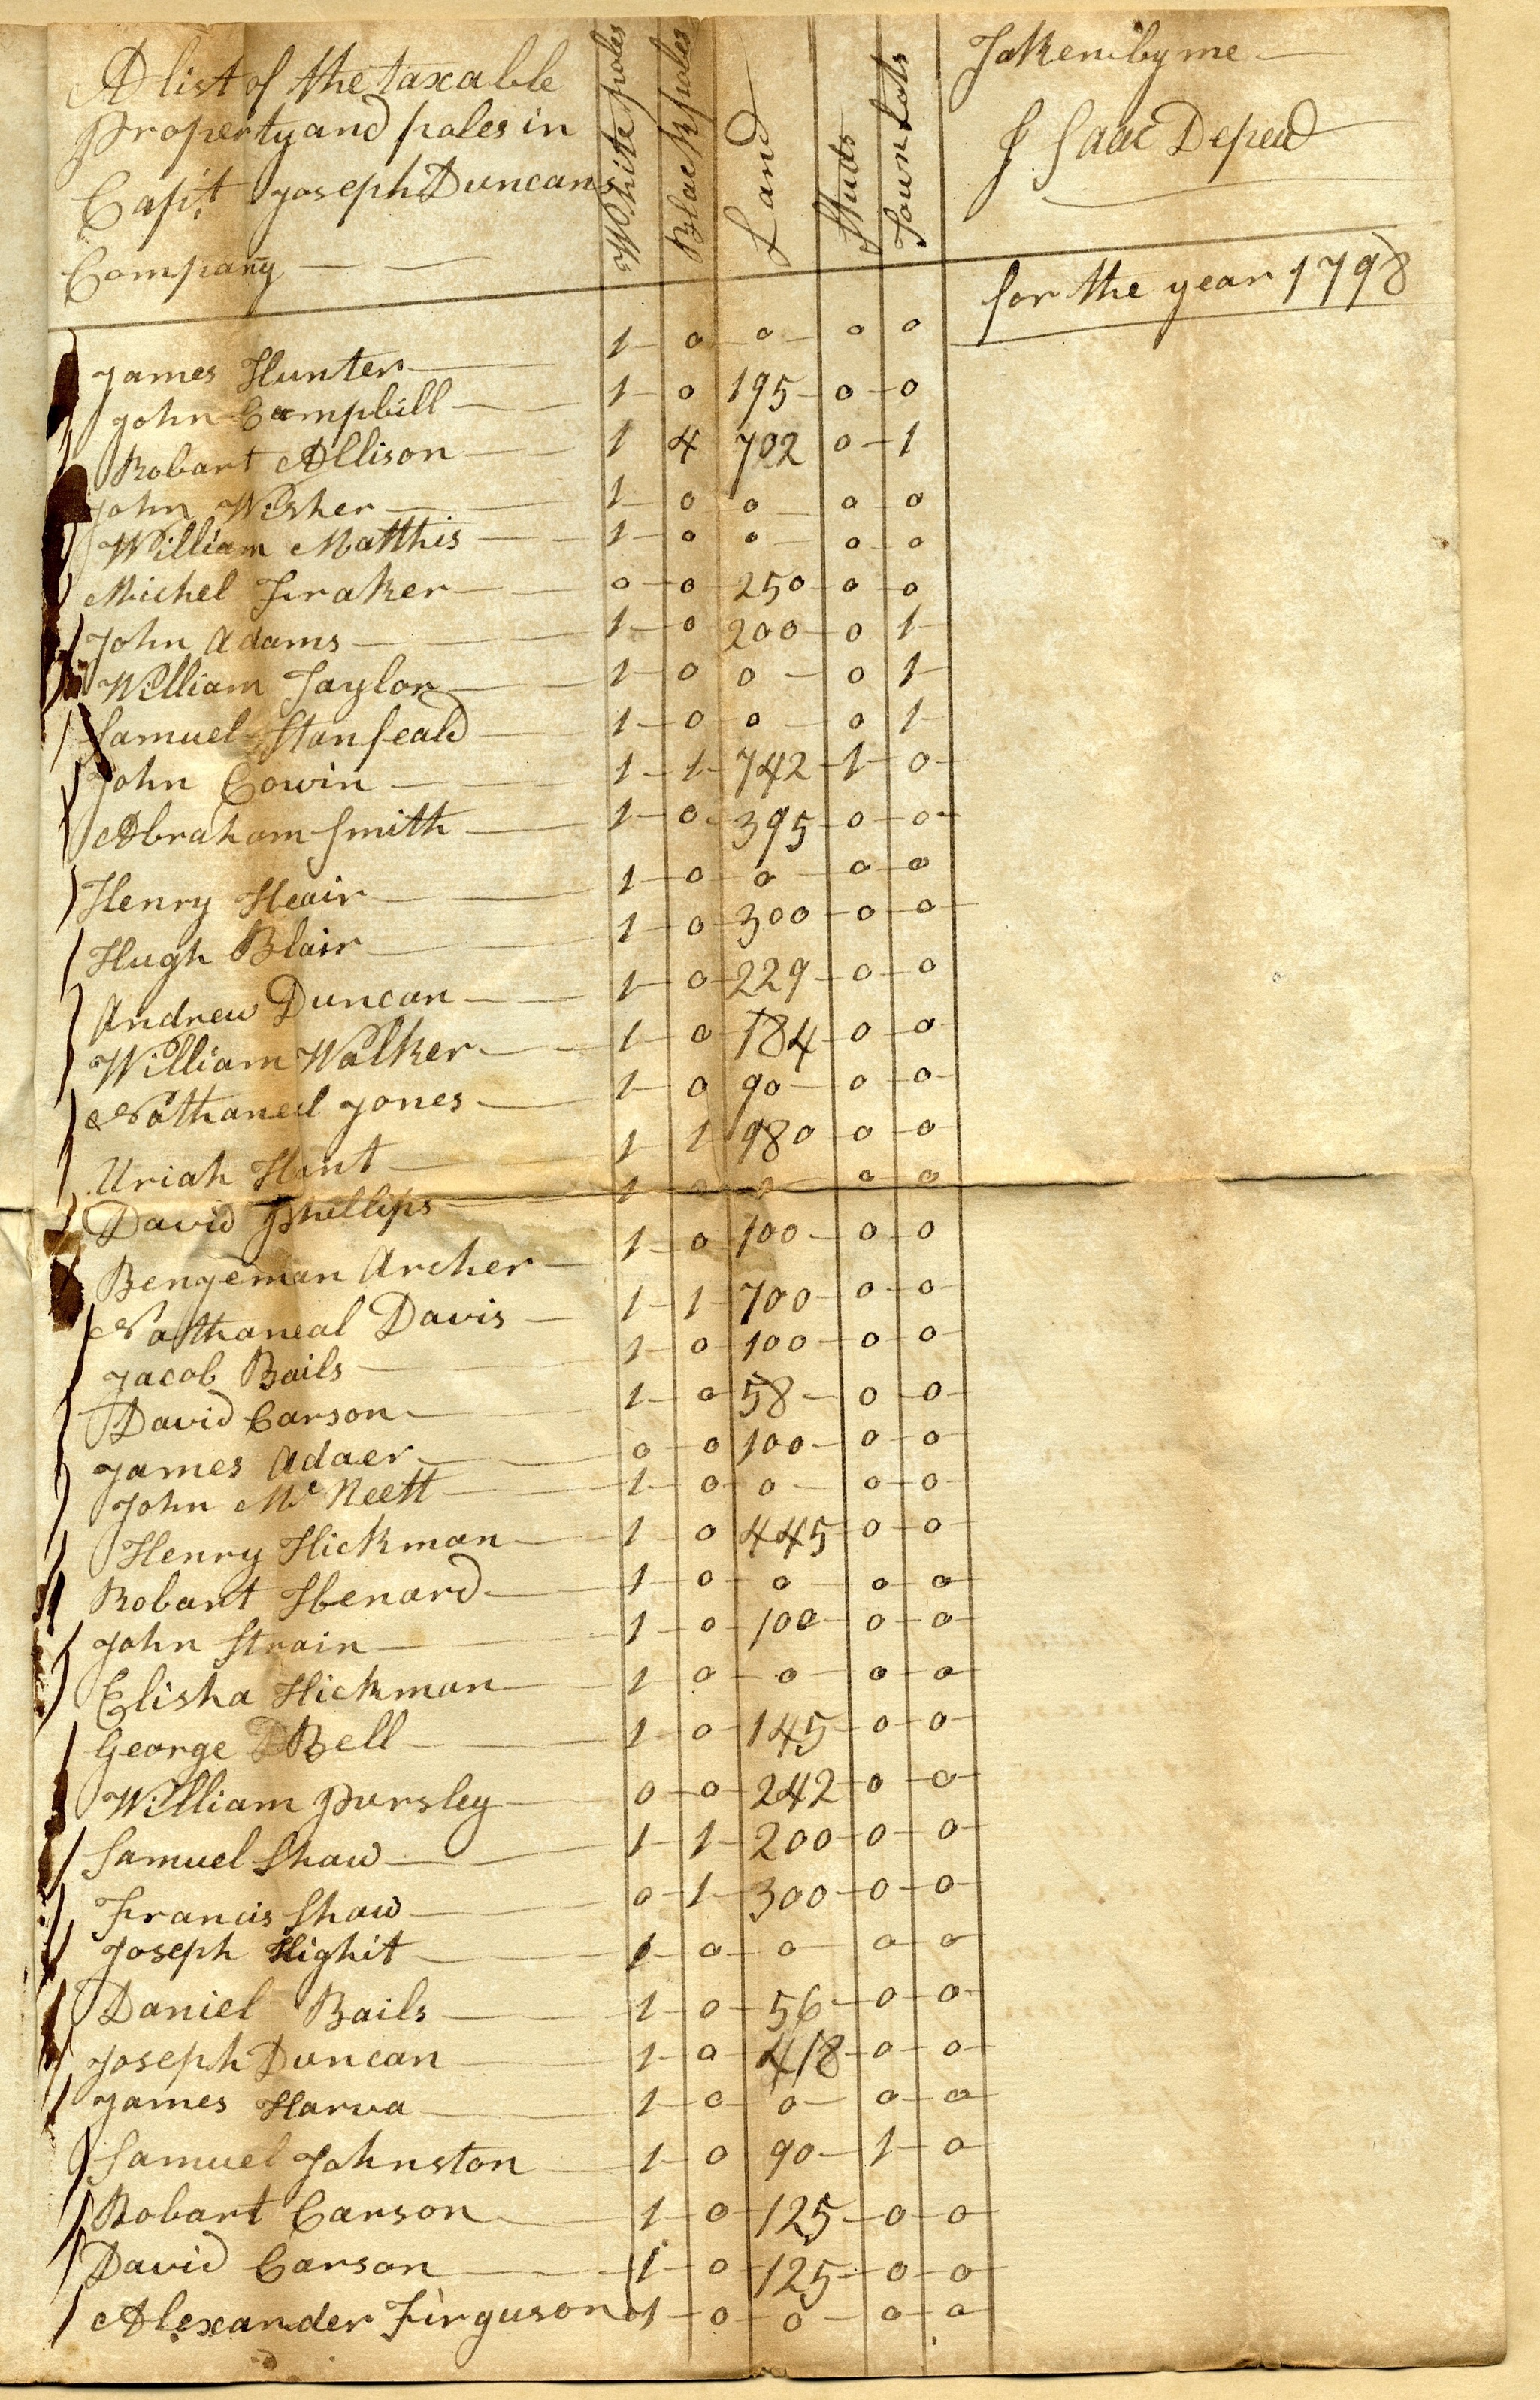 A list of the taxable
property and poles in
Capt. Joseph Duncans
Company
White poles
Black poles
Land
Studs
Town Lots
Taken by me
Isaac Depead
for the year 1798
James Hunter 1 0 0 0 0
John Campbill 1 0 195 0 0
Robart Allison 1 4 702 0 1
John Wisher 1 0 0 0 0
William Matthis 1 0 0 0 0
Michel Fraker 0 0 250 0 0
John Adams 1 0 200 0 1
William Taylor 1 0 0 0 1
Samuel Stanfeald 1 0 0 0 1
John Cowin 1 1 742 1 0
Abraham Smith 1 0 395 0 0
Henry Heair 1 0 0 0 0
Hugh Blair 1 0 300 0 0
Andrew Duncan 1 0 229 0 0
William Walker 1 0 184 0 0
Nathaneel Jones 1 0 90 0 0
Uriah Hunt 1 1 980 0 0
David Phillips 1 0 0 0 0
Bengeman Archer 1 0 100 0 0
Nathaneal Davis 1 1 700 0 0
Jacob Bails 1 0 100 0 0
David Carson 1 0 58 0 0
James Adaer 0 0 100 0 0
John Mc 1 0 0 0 0
Henry Hickman 1 0 445 0 0
Robart 1 0 0 0 0
John Strain 1 0 100 0 0
Elisha Hickman 1 0 0 0 0
George Bell 1 0 145 0 0
William Pursley 0 0 242 0 0
Samuel Shaw 1 1 200 0 0
Francis Shaw 0 1 300 0 0
Joseph Highit 1 0 0 0 0
Daniel Bails 1 0 56 0 0
Joseph Duncan 1 0 418 0 0
James Harva 1 0 0 0 0
Samuel Johnston 1 0 90 1 0
Robart Carson 1 0 125 0 0
David Carson 1 0 125 0 0
Alexander Firguson 1 0 0 0 0